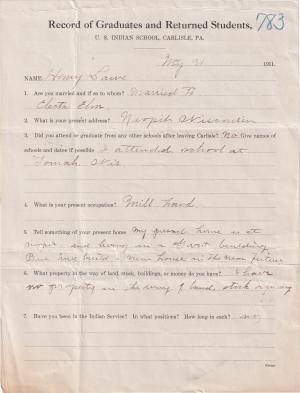 783
Record of Graduates and Returned Students,
U. S. INDIAN SCHOOL, CARLISLE, PA.
May 21 1911.
NAME Henry
1. Are you married and if so to whom? Married to
Elm.
2. What is your present address? Neopit Wisconsin
3. Did you attend or graduate from any other schools after leaving Carlisle? No. Give names of
schools and dates if possible I attended school at
Tomah Wis.
4. What is your present occupation? Mill hand
5. Tell something of your present home My present home is at
and living in a
build a new house in the near future
6. What property in the way of land, stock, buildings, or money do you have? I have
no property in the way of land, stock or money
7. Have you been in the Indian Service? In what positions? How long in each? no.